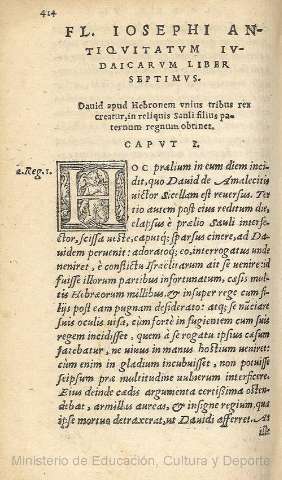 414
FL. IOSEPHI AN-
TIQVITATVM IV-
DAICARVM LIBER
SEPTIMVS.
Dauid apud Hebronem vnius tribus rex
creatur, in reliquis Sauli filius pa-
ternum regnum obtinet.
CAPVT I.
2. Reg. 1.
HOC prælium in eum diem inci-
dit, quo Dauid de Amalecitis
uictor Sicellam est reuersus. Ter
tio autem post eius reditum die,
elapsus è prælio Sauli interfe-
ctor, scissa ueste, caputq; sparsus cinere, ad Da-
uidem peruenit: adoratoq; eo, interrogatus unde
ueniret, è conflictu Israëlitarum ait se uenire: id
fuisse illorum partibus infortunatum, cæsis mul-
tis Hebræorum millibus, & insuper rege cum fi-
lijs post eam pugnam desiderato: atq; se nuntiare
suis oculis uisa, cùm fortè in fugientem cum suis
regem incidisset, quem à se rogatu ipsius cæsum
fatebatur, ne uiuus in manus hostium ueniret:
cùm enim in gladium incubuisset, non potuisse
seipsum præ multitudine uulnerum interficere.
Eius deinde cædis argumenta certissima osten-
debat, armillas aureas, & insigne regium, quæ
ipse mortuo detraxerat, ut Dauidi afferret. At
ille
Ministerio de Educación, Cultura y Deporte